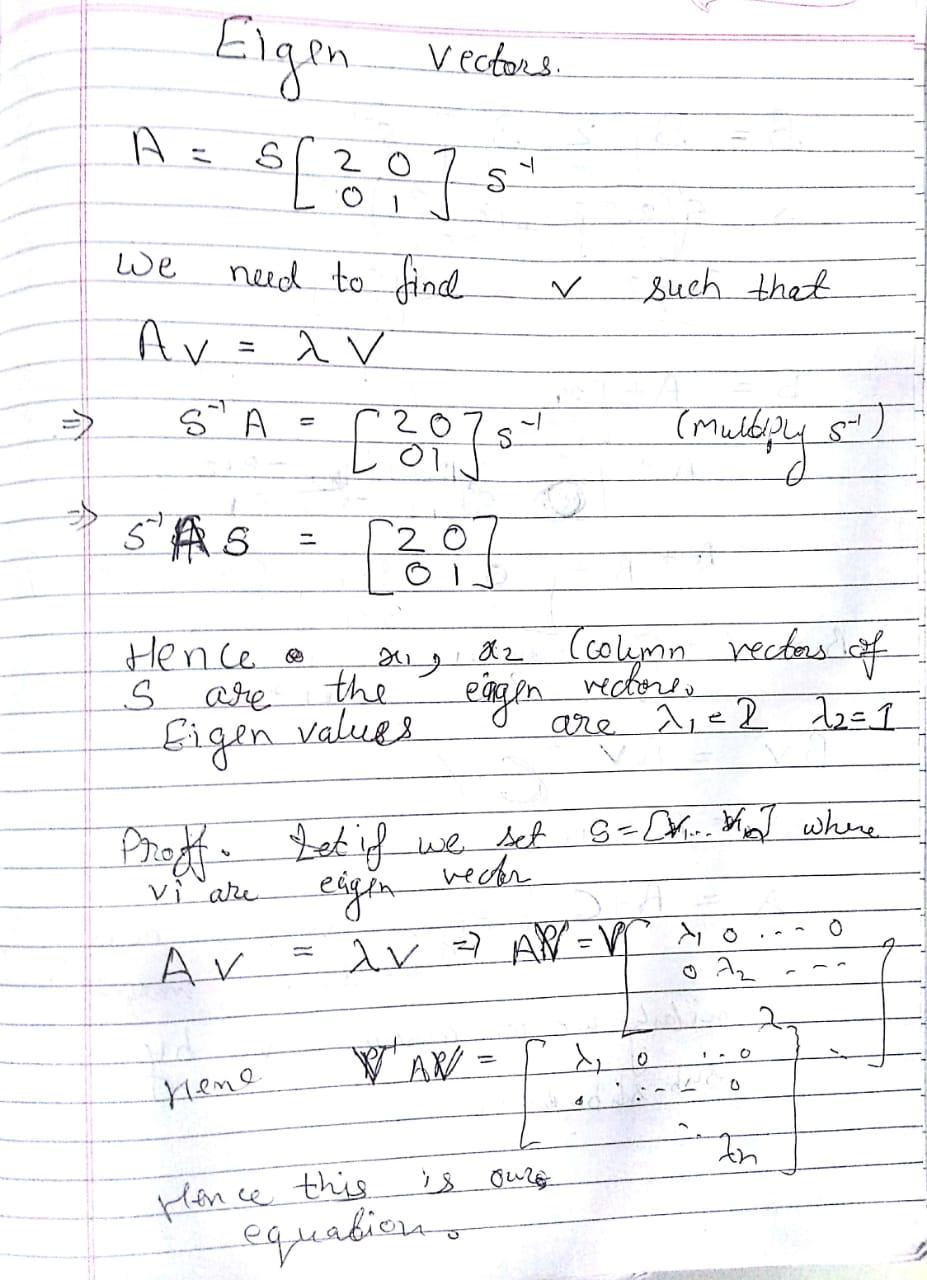 Eigen vectors.
A = S [ 2 0 ] S⁻¹
[ 0 1 ]
We need to find v such that
A v = λ V
⇒ S⁻¹ A = [ 2 0 ] S⁻¹ (multiply S⁻¹)
[ 0 1 ]
⇒ S⁻¹ A S = [ 2 0 ]
[ 0 1 ]
Hence x₁, x₂ (column vectors of
S are the eigen vectors.
Eigen values are λ₁ = 2 λ₂ = 1
Proff. Let if we set S = [V₁... Vn] where
vi are eigen vector
A v = λ v ⇒ AV = V [ λ₁ 0 ... 0
0 λ₂ - - -
λ
Hene V⁻¹ AV = [ λ₁ 0 .. 0
0
λn ]
Hence this is our
equation.